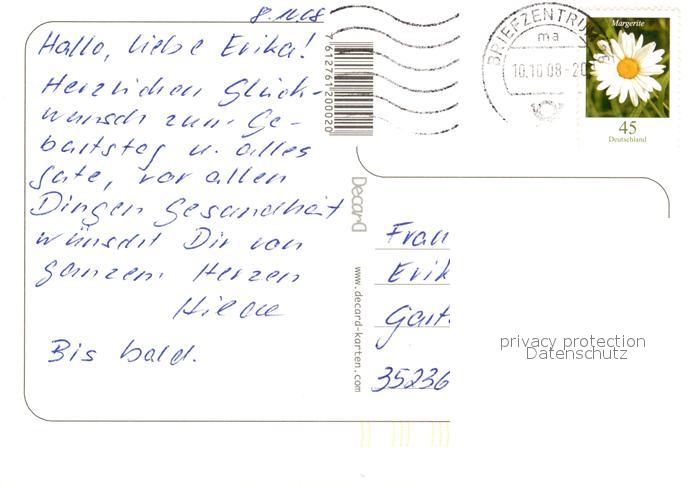 8.10.08
Hallo, liebe Erika!
Herzlichen Glück-
wunsch zum Ge-
burtstag u. alles
gute, vor allen
Dingen Gesundheit
wünscht Dir von
ganzem Herzen
Hilde
Bis bald.
7612761200020
Decard
www.decard-karten.com
BRIEFZENTRUM
ma
10.10.08-20
Margerite
45
Deutschland
Frau
Erik
Gart.
35236
privacy protection
Datenschutz